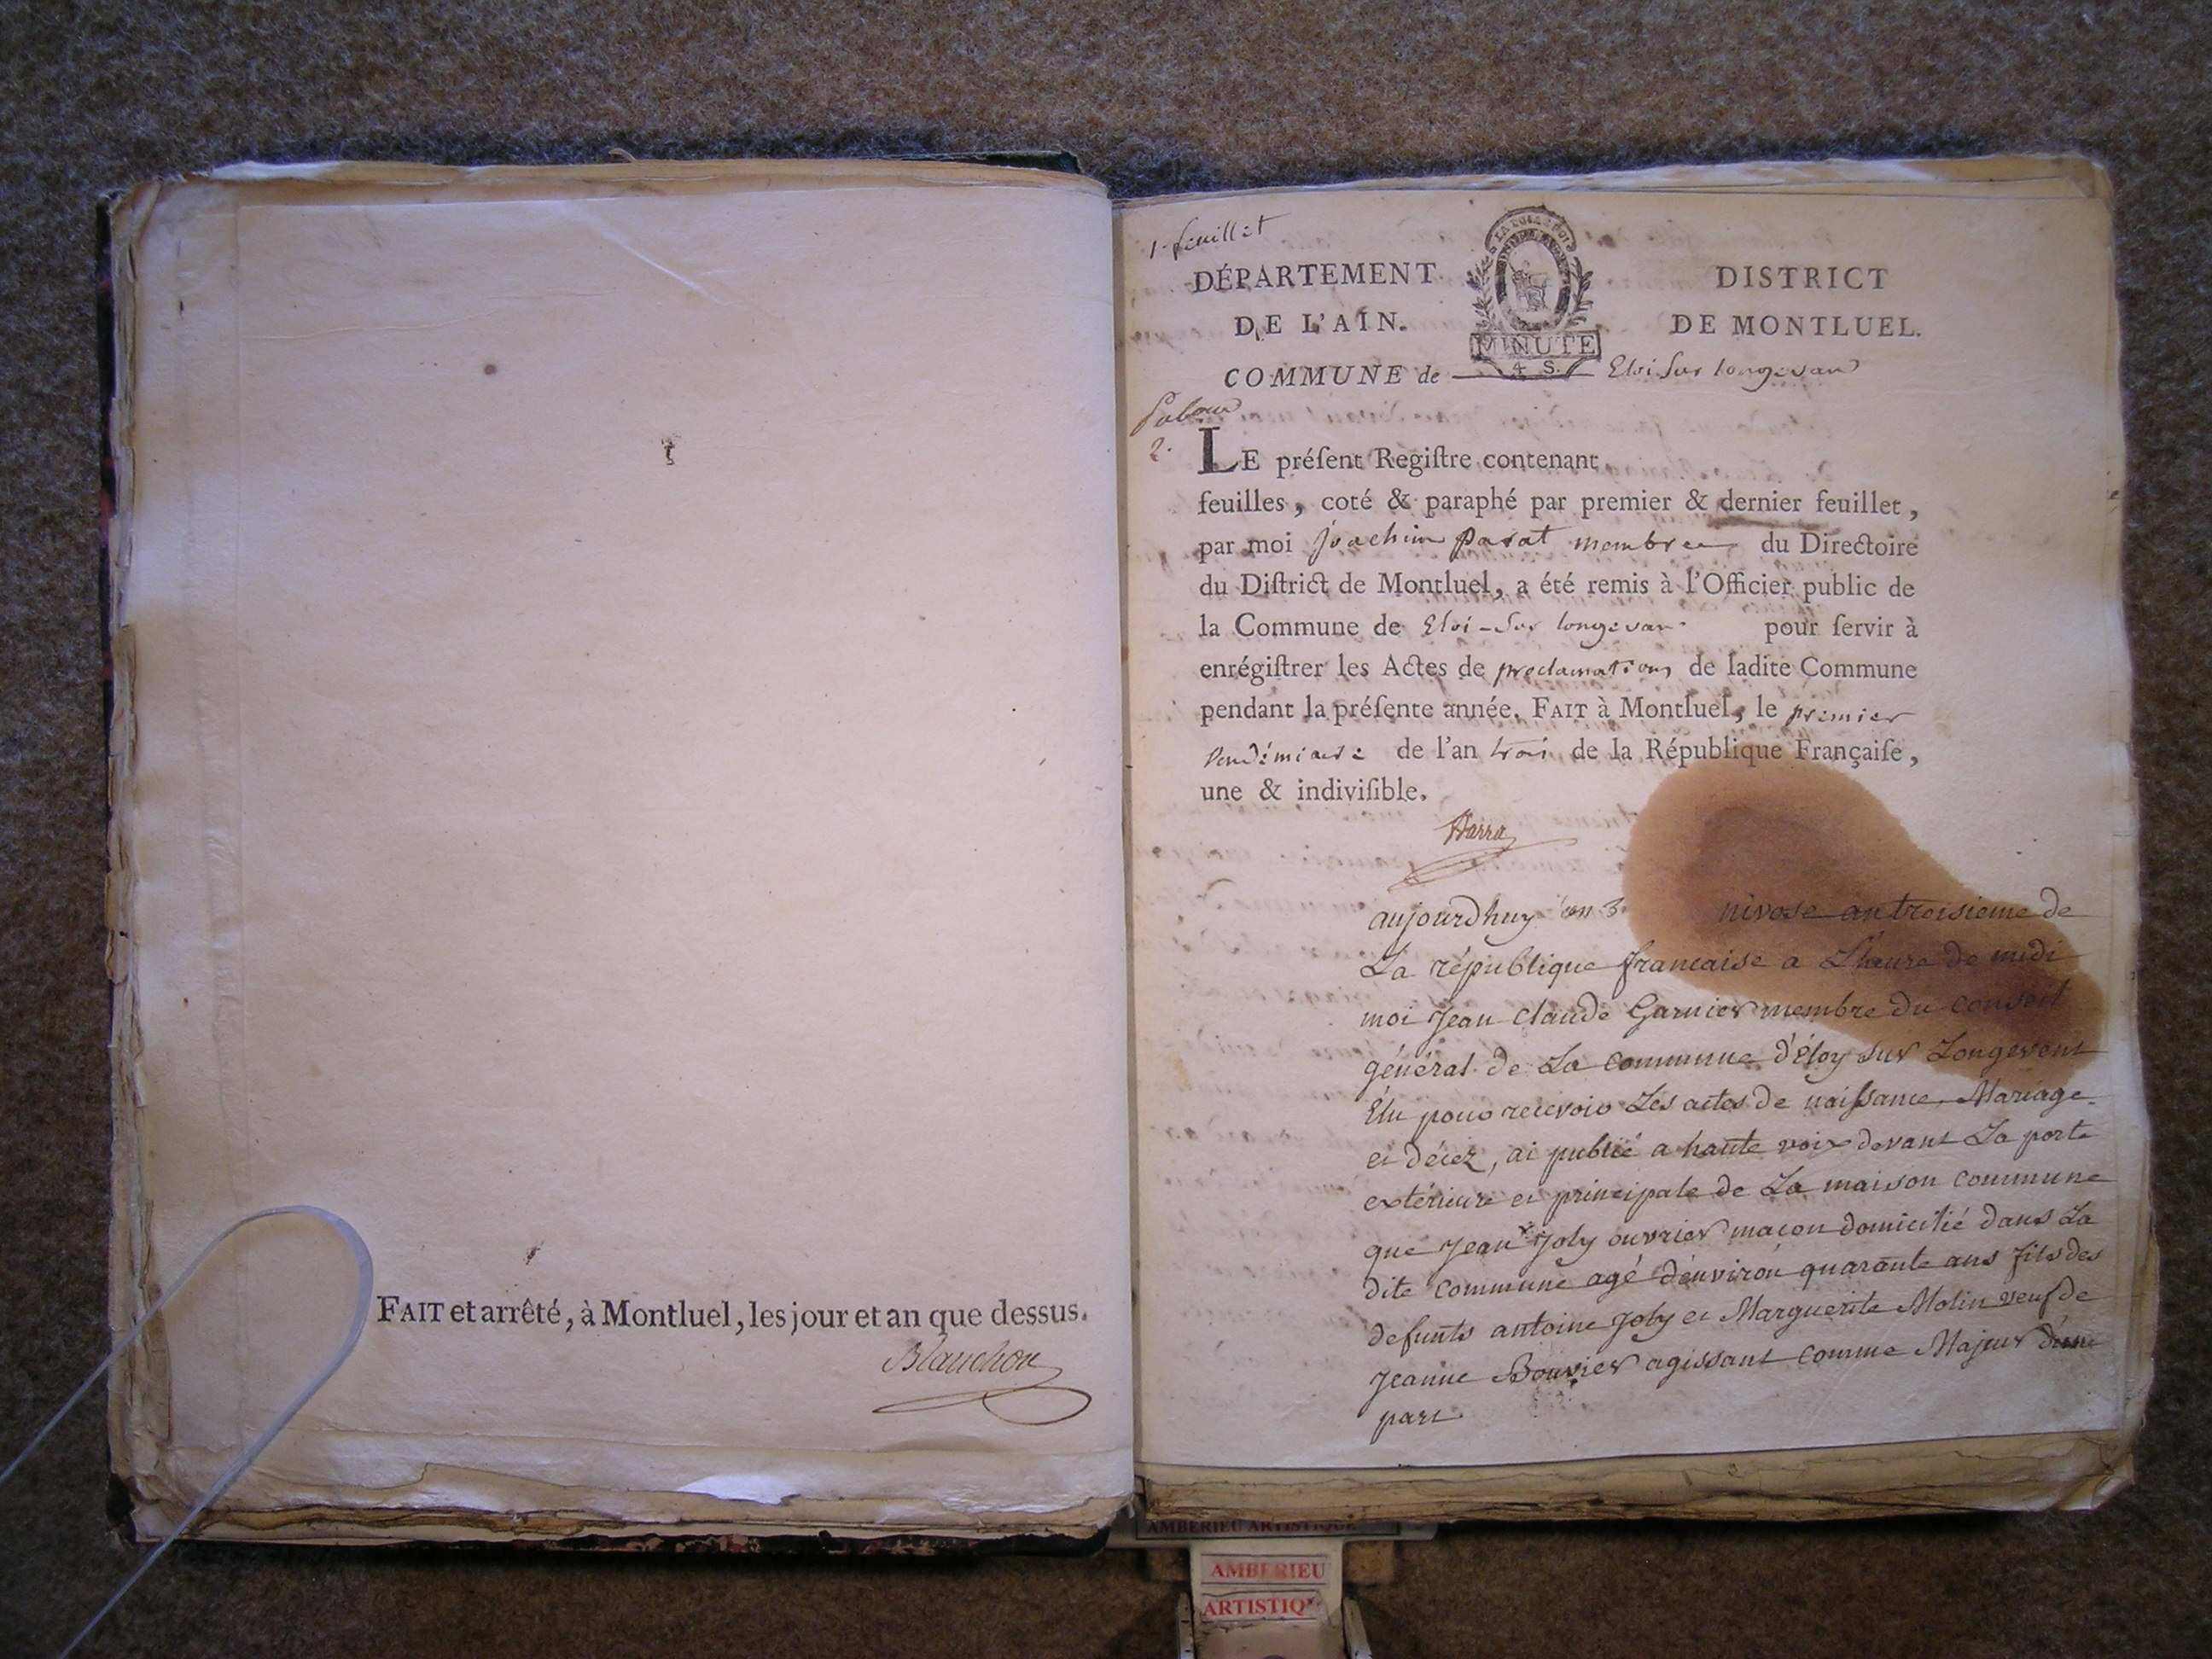 FAIT et arrêté, à Montluel, les jour et an que dessus.
Blanchon
1.r feuillet
DÉPARTEMENT
DE L'AIN.
LA LOI
MINUTE
4 S.
DISTRICT
DE MONTLUEL.
COMMUNE de Eloi sur longevan
2.
LE préſent Regiſtre contenant
feuilles, coté & paraphé par premier & dernier feuillet,
par moi joachim membre du Directoire
du Diſtrict de Montluel, a été remis à l'Officier public de
la Commune de Eloi-sur longevan pour ſervir à
enrégiſtrer les Actes de proclamations de ladite Commune
pendant la préſente année. FAIT à Montluel, le premier
Vendémiaire de l'an trois de la République Françaiſe,
une & indiviſible.
aujourdhuy nivose an troisieme de
La république francaise a L'heure de midi
moi Jean claude Garnier membre du conseil
général de La commune d'éloy sur Longevent
Elu pour recevoir Les actes de naissance, Mariage
et décez, ai publié a haute voix devant La porte
extérieure et principale de La maison commune
que Jean Joly ouvrier macon domicilié dans La
dite commune agé d'environ quarante ans fils des
defunts antoine Joly et Marguerite Molin veuf de
Jeanne Bouvier agissant comme Majeur d'une
part
AMBERIEU ARTISTIQUE
AMBERIEU
ARTISTIQ